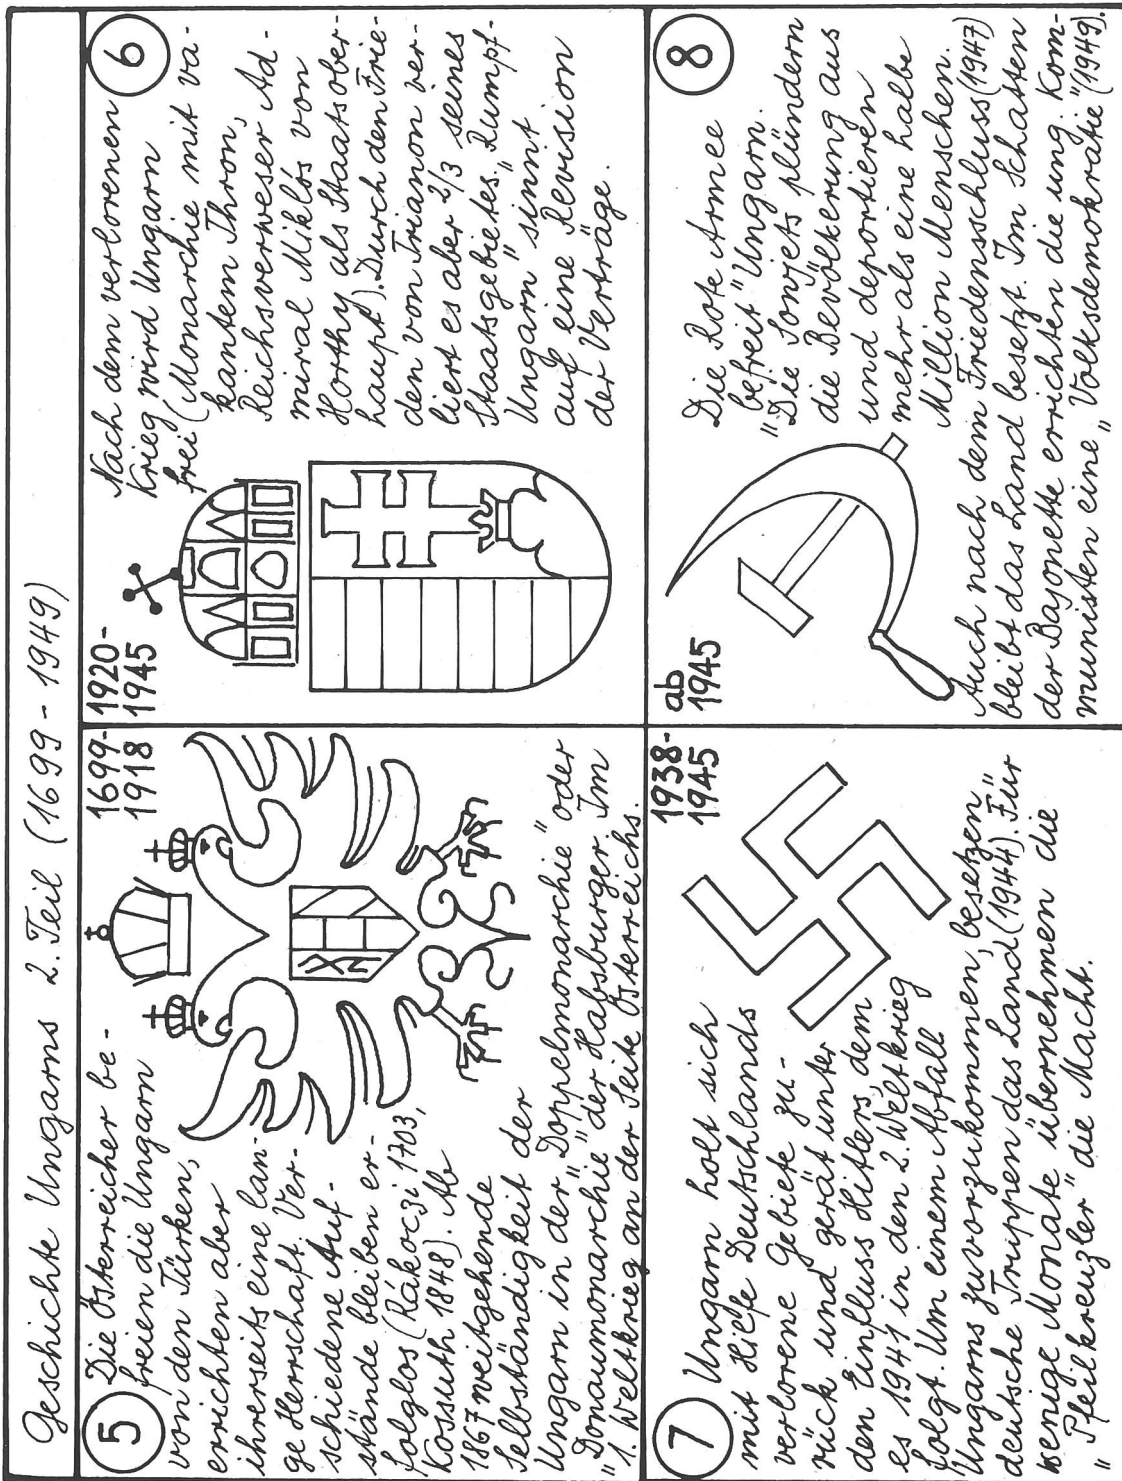 Geschichte Ungarns 2. Teil (1699 - 1949)
5
1699-
1918
Die Österreicher be-
freien die Ungarn
von den Türken,
errichten aber
ihrerseits eine lan-
ge Herrschaft. Ver-
schiedene Auf-
stände bleiben er-
folglos (Rákoczi 1703,
Kossuth 1848). Ab
1867 weitgehende
Selbständigkeit der
Ungarn in der „Doppelmonarchie" oder
„Donaumonarchie" der Habsburger. Im
1. Weltkrieg an der Seite Österreichs.
6
1920-
1945
Nach dem verlorenen
Krieg wird Ungarn
frei (Monarchie mit va-
kantem Thron,
Reichsverweser Ad-
miral Miklós von
Horthy als Staatsober-
haupt). Durch den Frie-
den von Trianon ver-
liert es aber 2/3 seines
Staatsgebietes. „Rumpf-
Ungarn" sinnt
auf eine Revision
der Verträge.
7
1938-
1945
Ungarn holt sich
mit Hilfe Deutschlands
verlorene Gebiete zu-
rück und gerät unter
den Einfluss Hitlers, dem
es 1941 in den 2. Weltkrieg
folgt. Um einem Abfall
Ungarns zuvorzukommen, besetzen
deutsche Truppen das Land (1944). Für
wenige Monate übernehmen die
„Pfeilkreuzler" die Macht.
8
ab
1945
Die Rote Armee
„befreit" Ungarn.
Die Sowjets plündern
die Bevölkerung aus
und deportieren
mehr als eine halbe
Million Menschen.
Auch nach dem Friedensschluss (1947)
bleibt das Land besetzt. Im Schatten
der Bajonette errichten die ung. Kom-
munisten eine „Volksdemokratie" (1949).